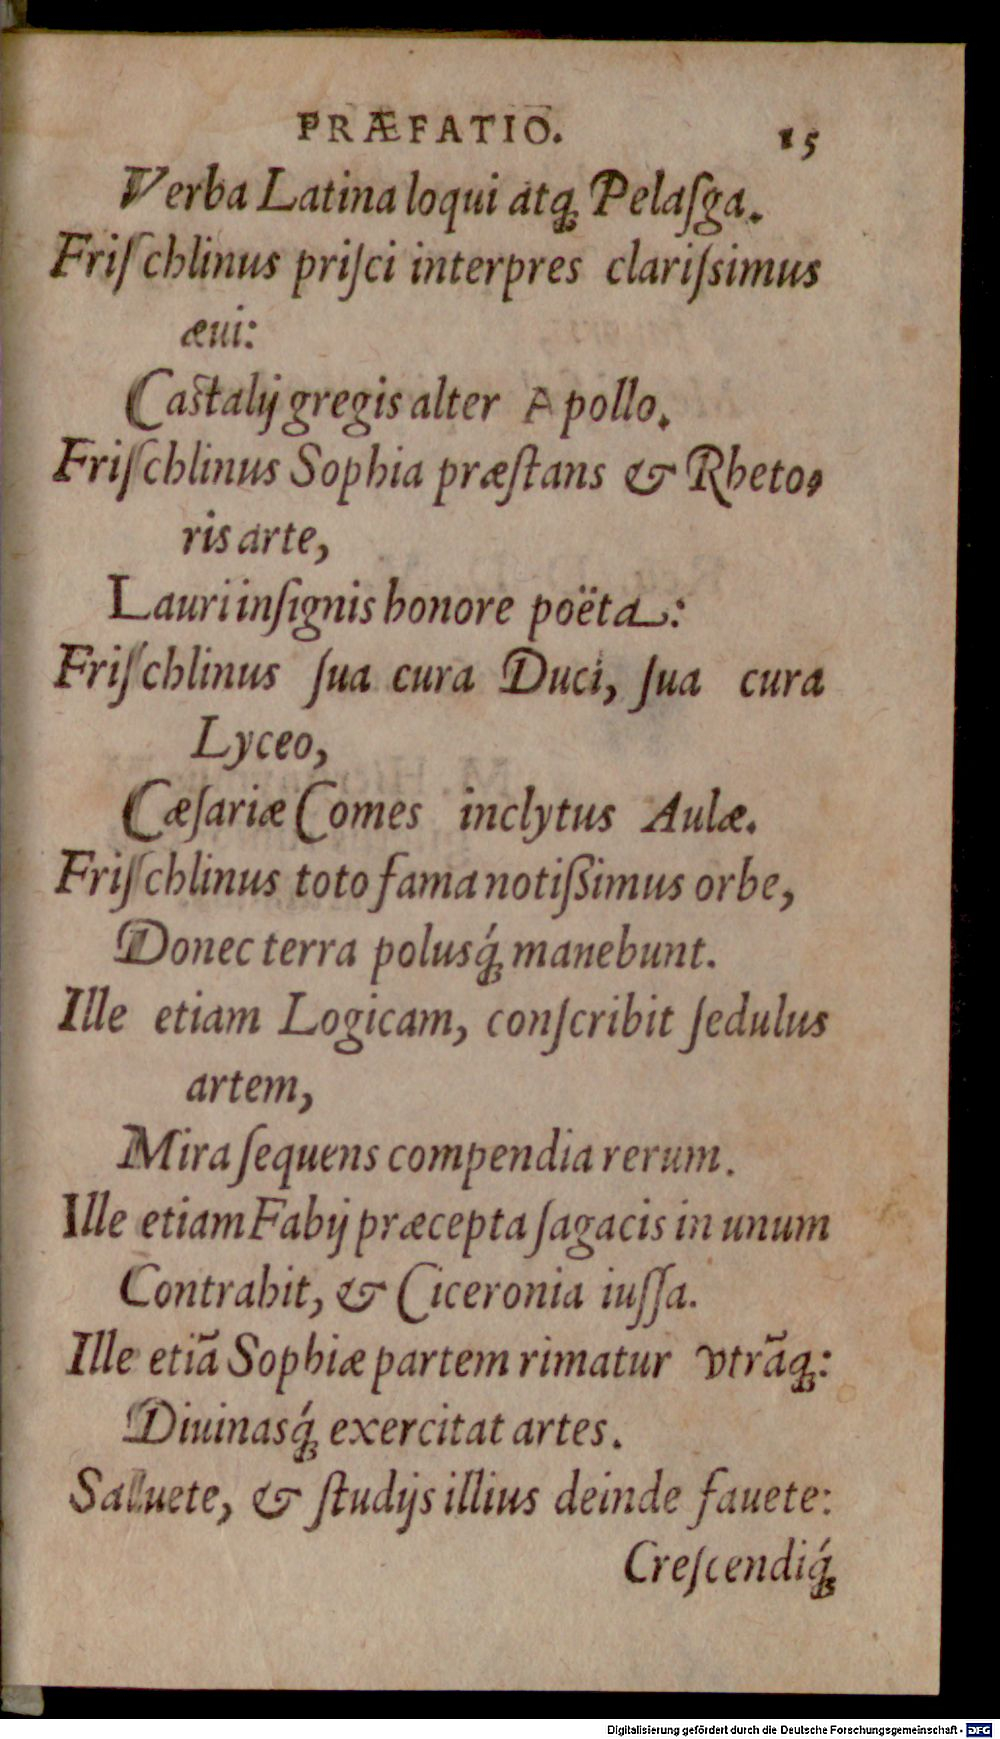 PRÆFATIO. 15
Verba Latina loqui atq́ꝫ Pelaſga.
Friſchlinus priſci interpres clariſsimus
æui:
Caſtalij gregis alter Apollo.
Friſchlinus Sophia præſtans & Rheto-
ris arte,
Lauri inſignis honore poëta:
Friſchlinus ſua cura Duci, ſua cura
Lyceo,
Cæſariæ Comes inclytus Aulæ.
Friſchlinus toto fama notiſsimus orbe,
Donec terra polusq́ꝫ manebunt.
Ille etiam Logicam, conſcribit ſedulus
artem,
Mira ſequens compendia rerum.
Ille etiam Fabij præcepta ſagacis in unum
Contrahit, & Ciceronia iuſſa.
Ille etiã Sophiæ partem rimatur vtrãqꝫ:
Diuinasq́ꝫ exercitat artes.
Saluete, & ſtudijs illius deinde fauete:
Creſcendiq́ꝫ
Digitalisierung gefördert durch die Deutsche Forschungsgemeinschaft - DFG